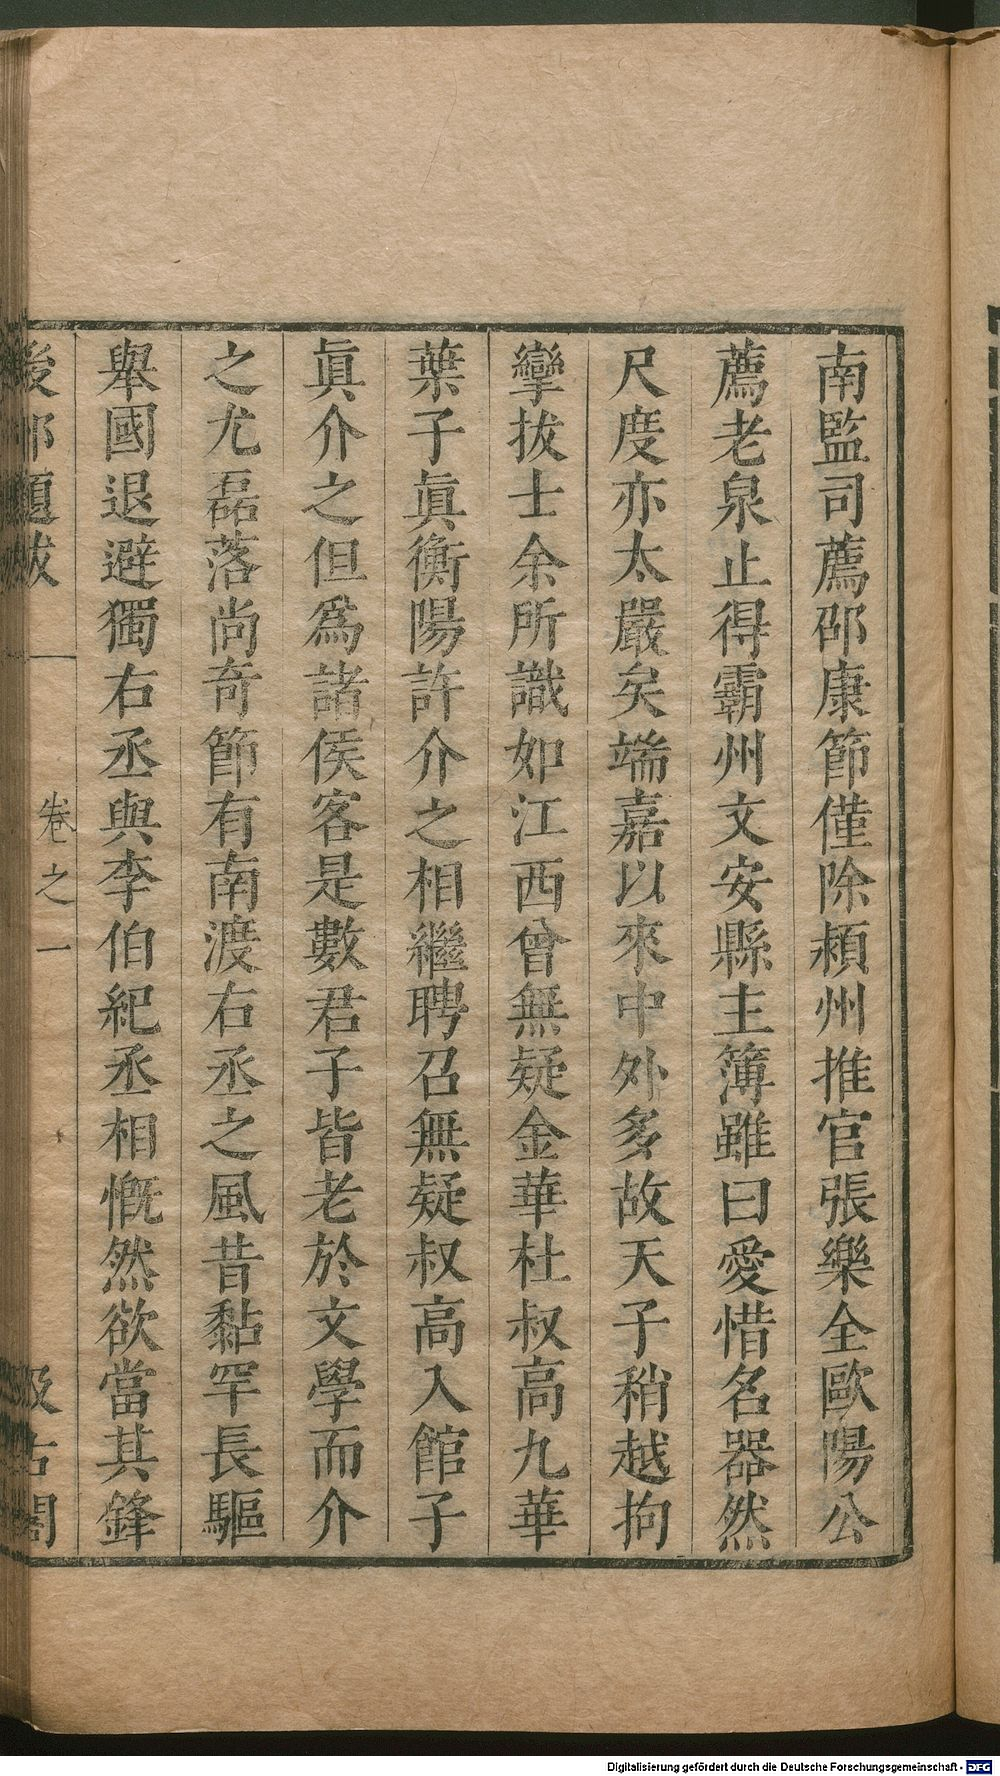 南監司薦邵康節僅除潁州推官張樂全歐陽公
薦老泉止得霸州文安縣主簿雖曰愛惜名器然
尺度亦太嚴矣端嘉以來中外多故天子稍越拘
攣拔士余所識如江西曾無疑金華杜叔高九華
葉子眞衡陽許介之相繼聘召無疑叔高入館子
眞介之但爲諸侯客是數君子皆老於文學而介
之尤磊落尚奇節有南渡右丞之風昔黏罕長驅
舉國退避獨右丞與李伯紀丞相慨然欲當其鋒
後邨題跋 卷之一 汲古閣
Digitalisierung gefördert durch die Deutsche Forschungsgemeinschaft - DFG